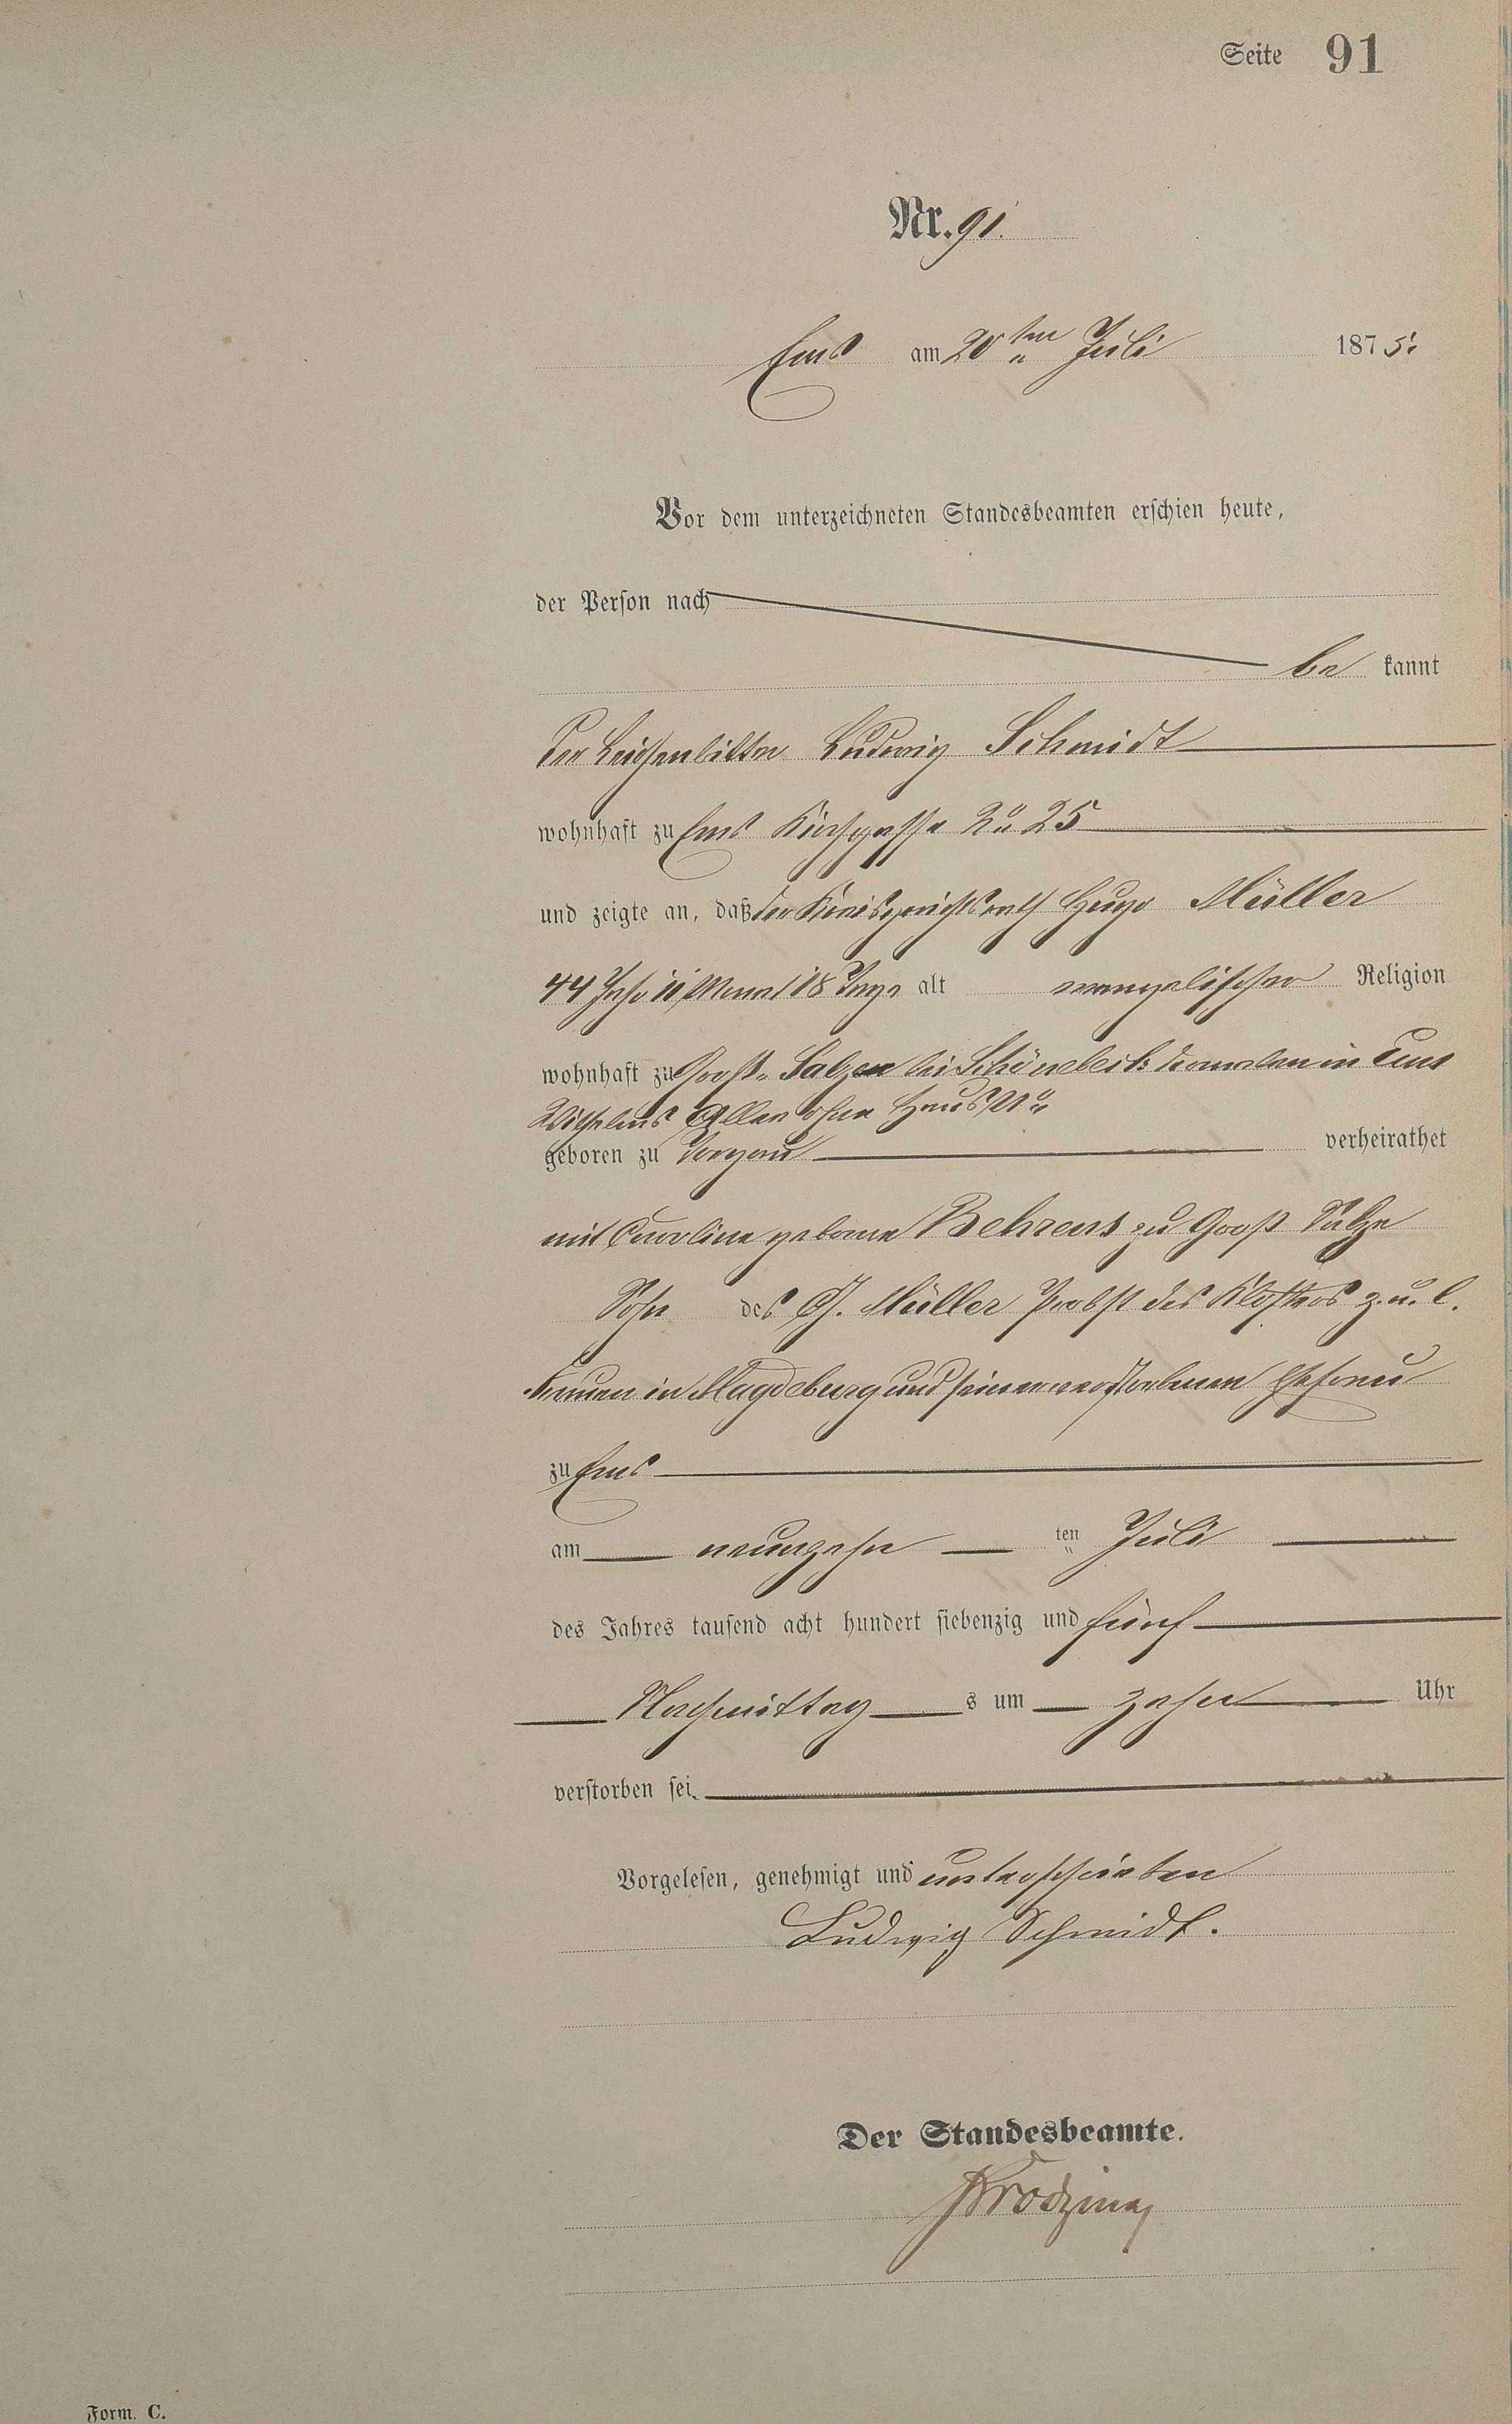 Seite 91
Nr. 91.
Ems am 20ten Juli 1875.
Vor dem unterzeichneten Standesbeamten erschien heute,
der Person nach
be kannt
der Leichenbitter Ludwig Schmidt
wohnhaft zu Ems Kirchgasse No 25
und zeigte an, daß der Kreisgerichtsrath Hugo Müller
44 Jahr 11 Monat 18 Tage alt evangelischer Religion
wohnhaft zu Groß-Salze bei Schönebeck dermalen in Ems
Wilhelms Allee ohne Haus No
geboren zu Torgau verheirathet
mit Caroline geborne Behrens zu Groß Salze
Sohn des G. Müller Probst des Klosters z. u. l.
Frauen in Magdeburg und seiner verstorbenen Ehefrau
zu Ems
am neunzehn ten Juli
des Jahres tausend acht hundert siebenzig und fünf
Nachmittag s um zehn Uhr
verstorben sei.
Vorgelesen, genehmigt und unterschrieben
Ludwig Schmidt.
Der Standesbeamte.
Form. C.